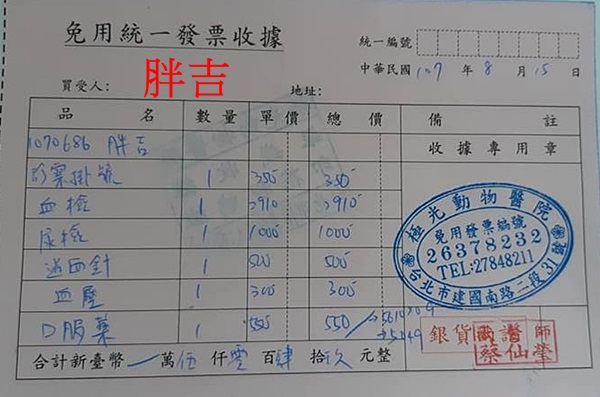 免用統一發票收據
統一編號
中華民國 107 年 8 月 15 日
買受人： 胖吉 地址：
品名 數量 單價 總價 備註
1070686 胖吉 收據專用章
診察掛號 1 350 350
血檢 1 3910 3910
尿檢 1 1000 1000
1 500 500
血壓 1 300 300
口服藥 1 550 550
極光動物醫院
免用發票編號
26378232
TEL:27848211
台北市建國南路二段31號
銀貨兩訖
師
蔡仙瑩
合計新臺幣 萬 伍 仟 零 百 肆 拾 玖 元整